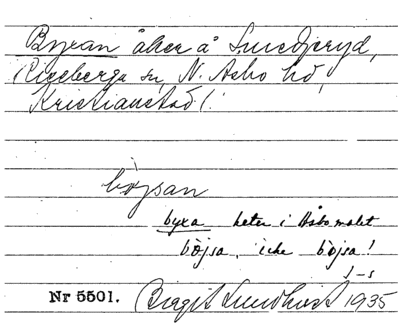 Byxan åker å Smedjeryd,
Riseberga sn, N. Asbo hd,
Kristianstad l.
böjsan
byxa heter i Åsbomålet
böjsa, icke böjsa!
J-s
Nr 5501. Birgit Lundkvist 1935